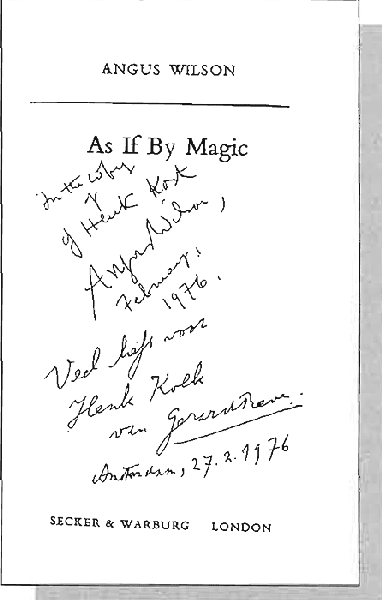 ANGUS WILSON
As If By Magic
In the copy
of
of Henk Kost
Angus Wilson,
February,
1976.
Veel liefs voor
Henk Kolk
van Gerard Reve.
Amsterdam, 27.2.1976
SECKER & WARBURG LONDON